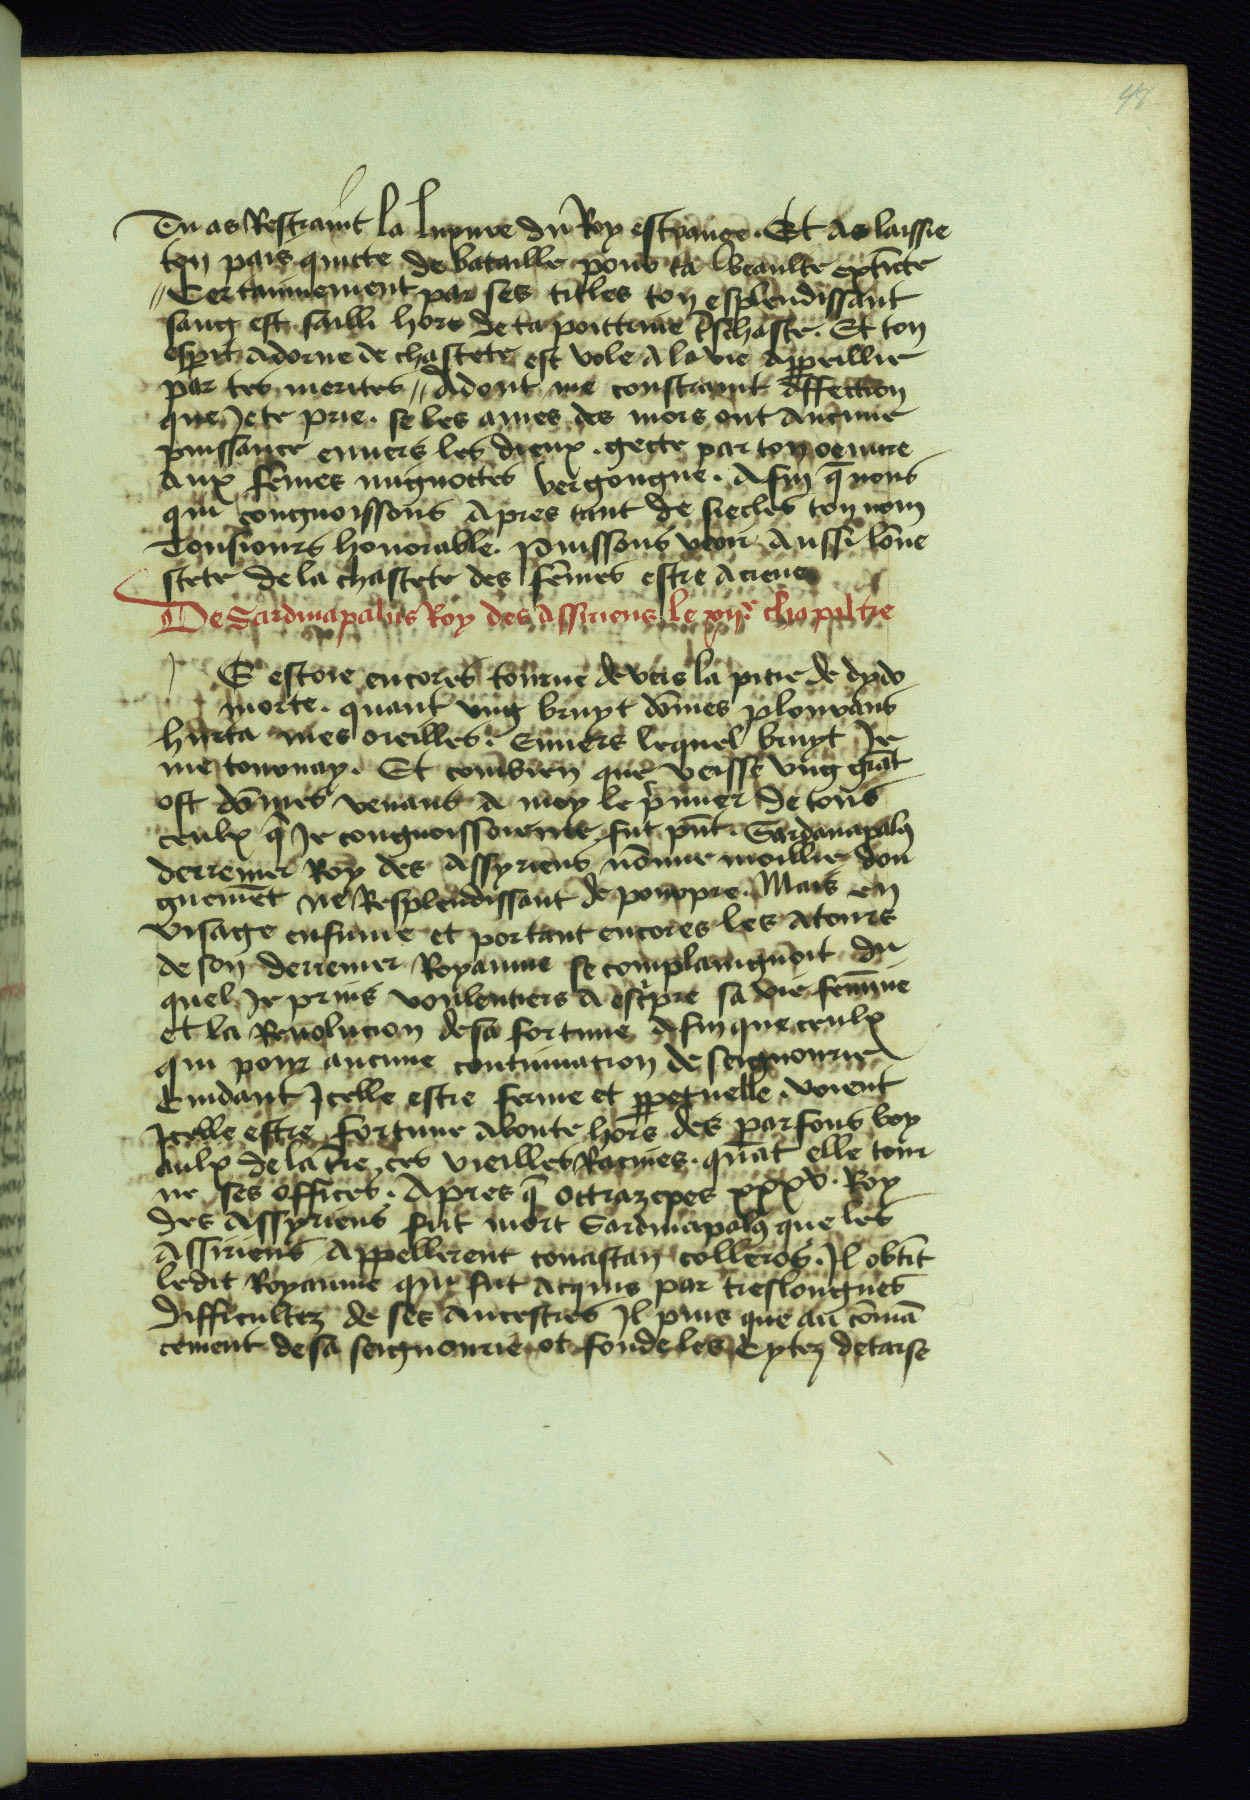 48
Tu as Restraint la luxure du Roy estrange. Et As laissie
ton pais quicte de bataille pour ta beaulte extīcte
// Certainnement par ses titles ton esplendissant
sang est sailli hors de ta poittrine tʳschaste. Et ton
esprit Adorne de chastete est vole A la vie Appeillie
par tes merites // Adont me constraint Affection
que Je te prie. se les ames des mors ont Aucune
puissance enuers les dieux. gecte par ton oeuure
Aux fēmes mignottes vergongne. A fin q̄ nous
qui congnoissons Apres tant de siecles ton nom
Tousiours honorable. Puissons veoir Aussi lōne
stete de la chastete des fēmes estre Acreue
De Sardinapalus Roy des Assiriens le xijᵉ chapiltre
E estoie encores tourne deuers la pitie de dydo
morte. quant vng bruyt dōmes plourans
hurta mes oreilles. Enuers lequel bruyt Je
me tournay. Et combien que veisse vng grāt
ost dōmes venans A moy le pʳmier de tous
ceulx q̄ Je congnoissoie fut pn̄t. Sardanapalꝰ
derrenier Roy des Assyriens nōmie moullie don
guemēt ne Resplendissant de pourpre. Mais en
visage enfume et portant encores les Atours
de son derrenier Royaume se complaignoit du
quel Je prins voulentiers A escʳpre sa vie femīne
et la Reuolucion de sa fortune A fin que ceulx
qui pour aucune continuacion de seignourie
Cuidant Jcelle estre ferme et ꝑpetuelle. voient
Jcelle estre fortune Aboute hors des parfons boy
aulx de la tʳre, ces vieilles Racines. quāt elle tour
ne ses offices. Apres q̄ Ottrazepes xxxv. Roy
des Assyriens fut mort Sardinapalꝰ que les
Assiriens Appellerent conastan colleros. Il obtīt
ledit Royaume qui fut Acquis par treslongues
difficultez de ses Ancestres Il puis que au cōmā
cement de sa seignourie ot fonde les Cytez de tarse